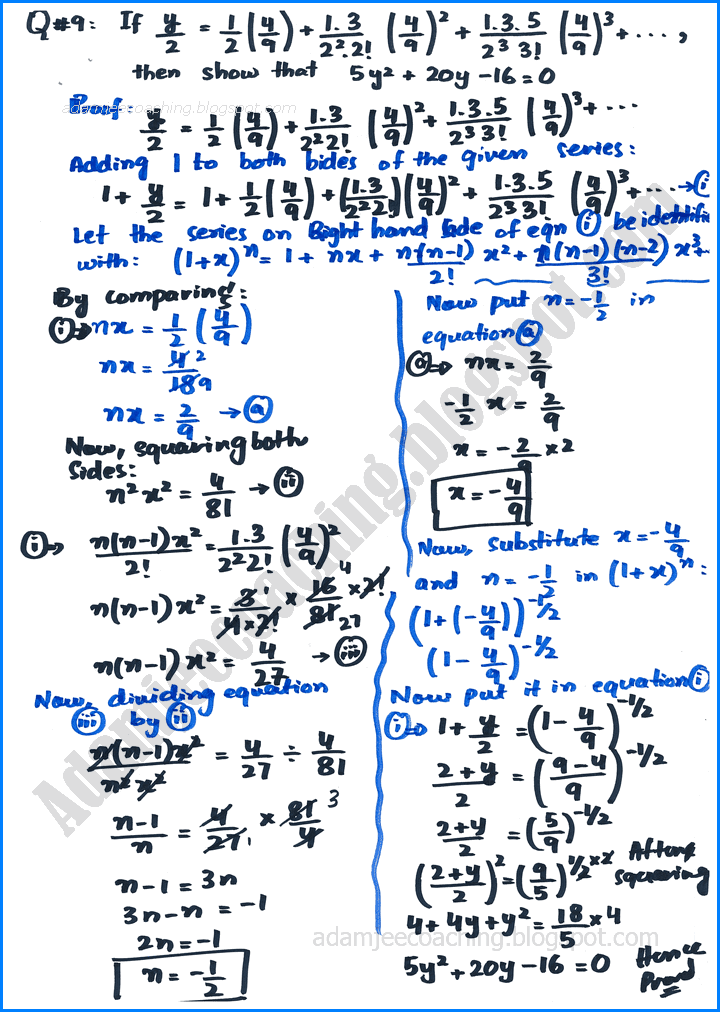 Q#9: If y/2 = 1/2 (4/9) + 1.3/2².2! (4/9)² + 1.3.5/2³ 3! (4/9)³ + ....,
then show that 5y² + 20y - 16 = 0
Proof:
adamjeecoaching.blogspot.com
y/2 = 1/2 (4/9) + 1.3/2²2! (4/9)² + 1.3.5/2³ 3! (4/9)³ + ...
Adding 1 to both bides of the given series:
1 + y/2 = 1 + 1/2 (4/9) + (1.3/2²2!)(4/9)² + 1.3.5/2³3! (4/9)³ + ... → (i
Let the series on Right hand Side of eqn (i) be identifi
with: (1+x)ⁿ = 1 + nx + n(n-1)/2! x² + n(n-1)(n-2)/3! x³+
By comparing:
(i)⇒ nx = 1/2 (4/9)
nx = 4/18 2 9
nx = 2/9 → (a)
Now, squaring both
Sides:
n²x² = 4/81 → (ii)
(i)⇒ n(n-1)x²/2! = 1.3/2²2! (4/9)²
n(n-1)x² = 3/4×2! × 16/81 × 2! 1 4 27
n(n-1)x² = 4/27 → (iii)
Now, dividing equation
(iii) by (ii)
n(n-1)x²/n²x² = 4/27 ÷ 4/81
n-1/n = 4/27 × 81/4 1 3
n-1 = 3n
3n-n = -1
2n = -1
n = -1/2
Now put n = -1/2 in
equation (a)
(a)⇒ nx = 2/9
-1/2 x = 2/9
x = -2/9 × 2
x = -4/9
Now, substitute x = -4/9
and n = -1/2 in (1+x)ⁿ:
(1+(-4/9))^-1/2
(1 - 4/9)^-1/2
Now put it in equation (i)
(i)⇒ 1 + y/2 = (1 - 4/9)^-1/2
2+y/2 = (9-4/9)^-1/2
2+y/2 = (5/9)^-1/2
(2+y/2)² = (9/5)^1/2×2 After squaring
4 + 4y + y² = 18/5 × 4
adamjeecoaching.blogspot.com
5y² + 20y - 16 = 0 Hence Proved
Adamjeecoaching.blogspot.com